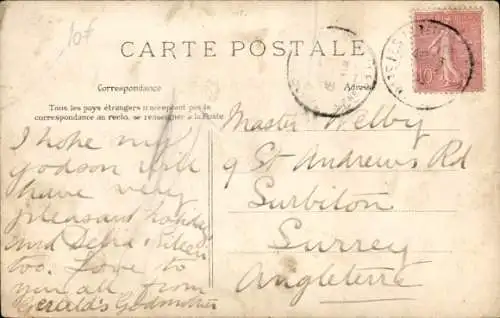 10f
CARTE POSTALE
Correspondance
Adresse
Tous les pays étrangers n'acceptent pas la
correspondance au recto, se renseigner à la Poste
I hope my
godson will
have very
pleasant holiday
and Delia &
too. Love to
you all from
Gerald's Godmother
Master Welby
9 St Andrews Rd
Surbiton
Surrey
Angleterre
10